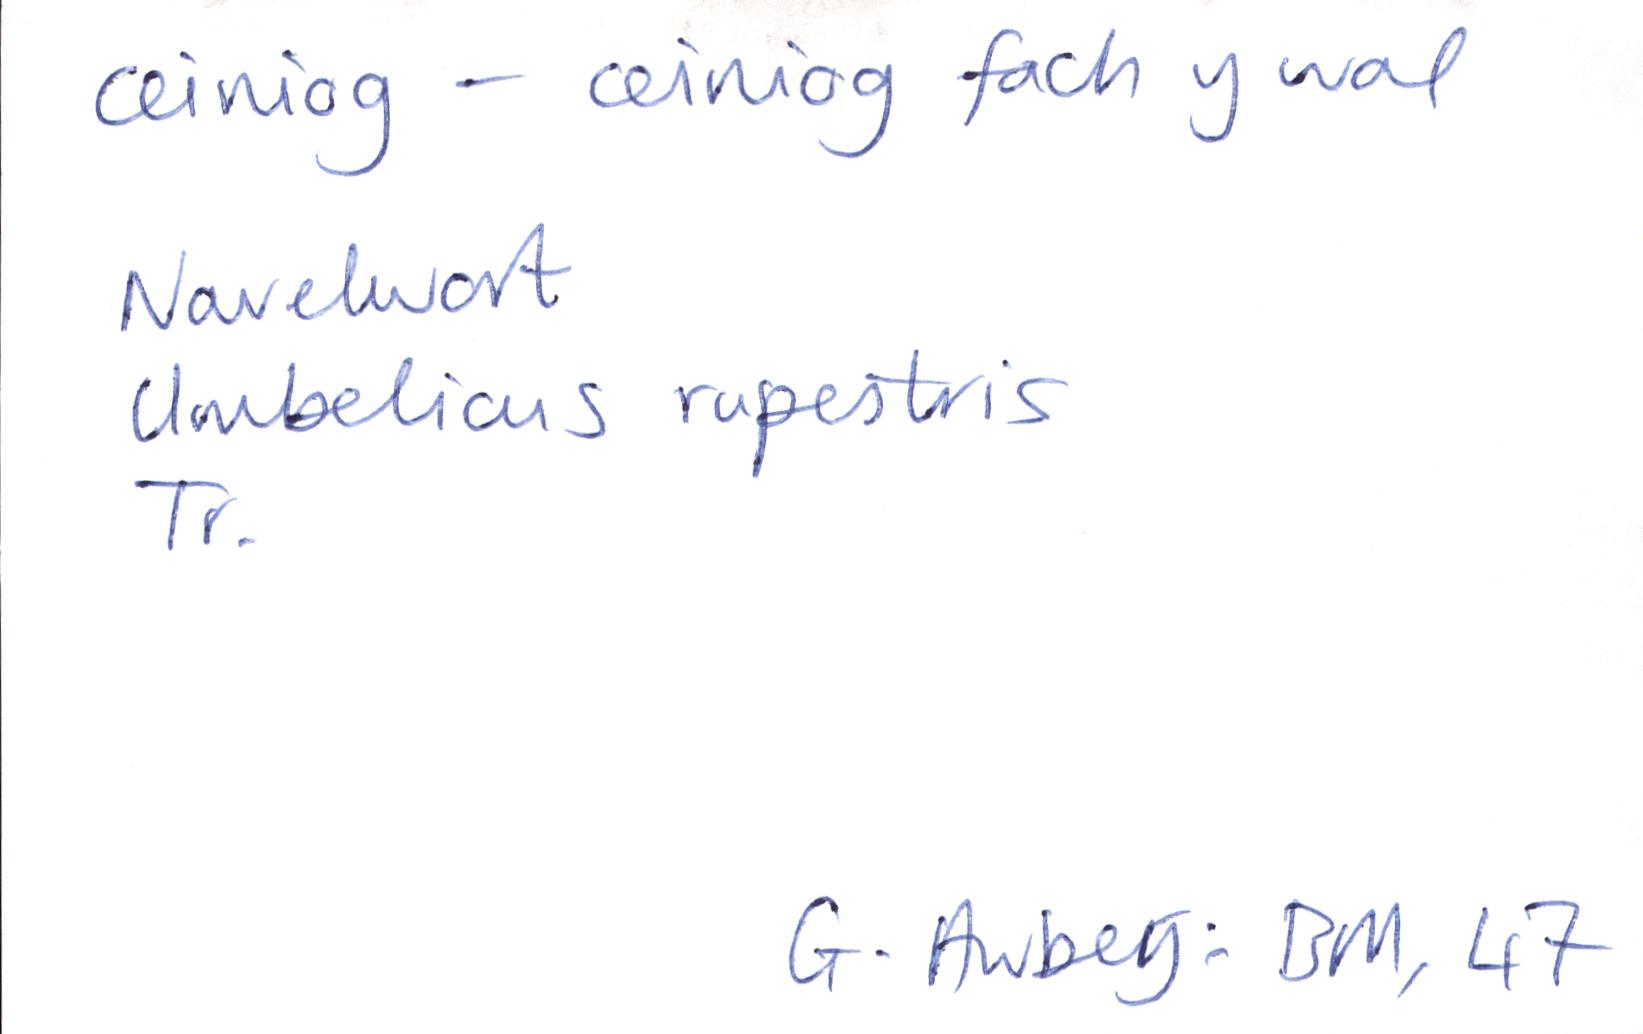 ceiniog – ceiniog fach y wal
Navelwort
Umbelicus rupestris
Tr.
G. Awbery: BM, 47